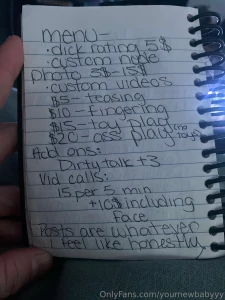 menu-
·dick rating 5$
·custom nude
photo 5$-15$
·custom videos
$5- teasing
$10- fingering
$15- toy play
$20- ass play (no
Add ons:
Dirty talk +3
Vid calls:
15 per 5 min
+10$ including
Face
Posts are whatever
I feel like honestly
OnlyFans.com/yournewbabyyy